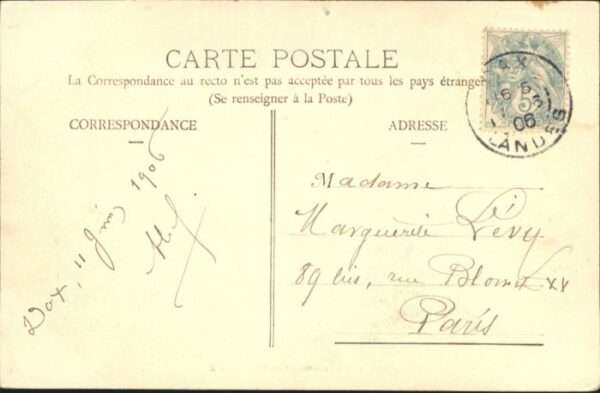 CARTE POSTALE
La Correspondance au recto n'est pas acceptée par tous les pays étranger
(Se renseigner à la Poste)
CORRESPONDANCE
ADRESSE
5
06
LANDES
Dax, 11 Juin 1906
Madame
Marguerite Lévy
89 bis, rue Blomet XV
Paris